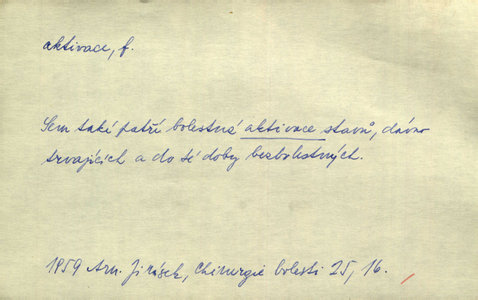 aktivace, f.
Sem také patří bolestná aktivace stavů, dávno
trvajících a do té doby bezbolestných.
1959 Arn. Jirásek, Chirurgie bolesti 25, 16.